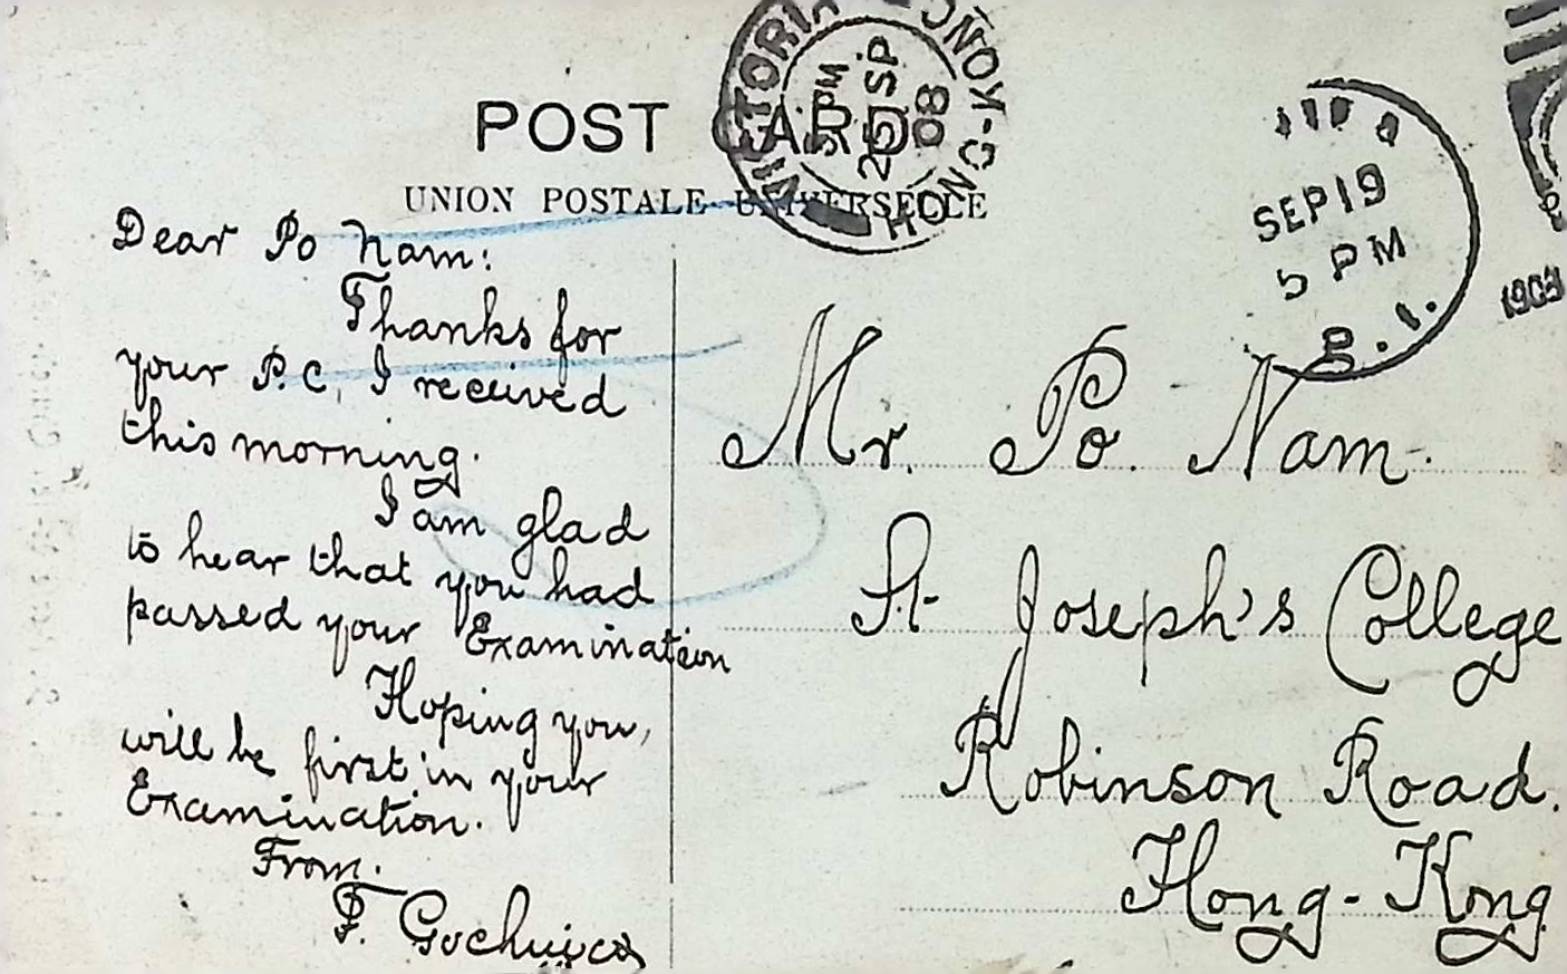 POST CARD
UNION POSTALE UNIVERSELLE
VICTORIA HONG-KONG
5 PM
25 SP
08
SEP 19
5 PM
P. I.
Dear Po Nam:
Thanks for
your P.C, I received
this morning.
I am glad
to hear that you had
passed your Examination
Hoping you,
will be first in your
Examination.
From.
Mr. Po. Nam.
St. Joseph's College
Robinson Road.
Hong-Kong